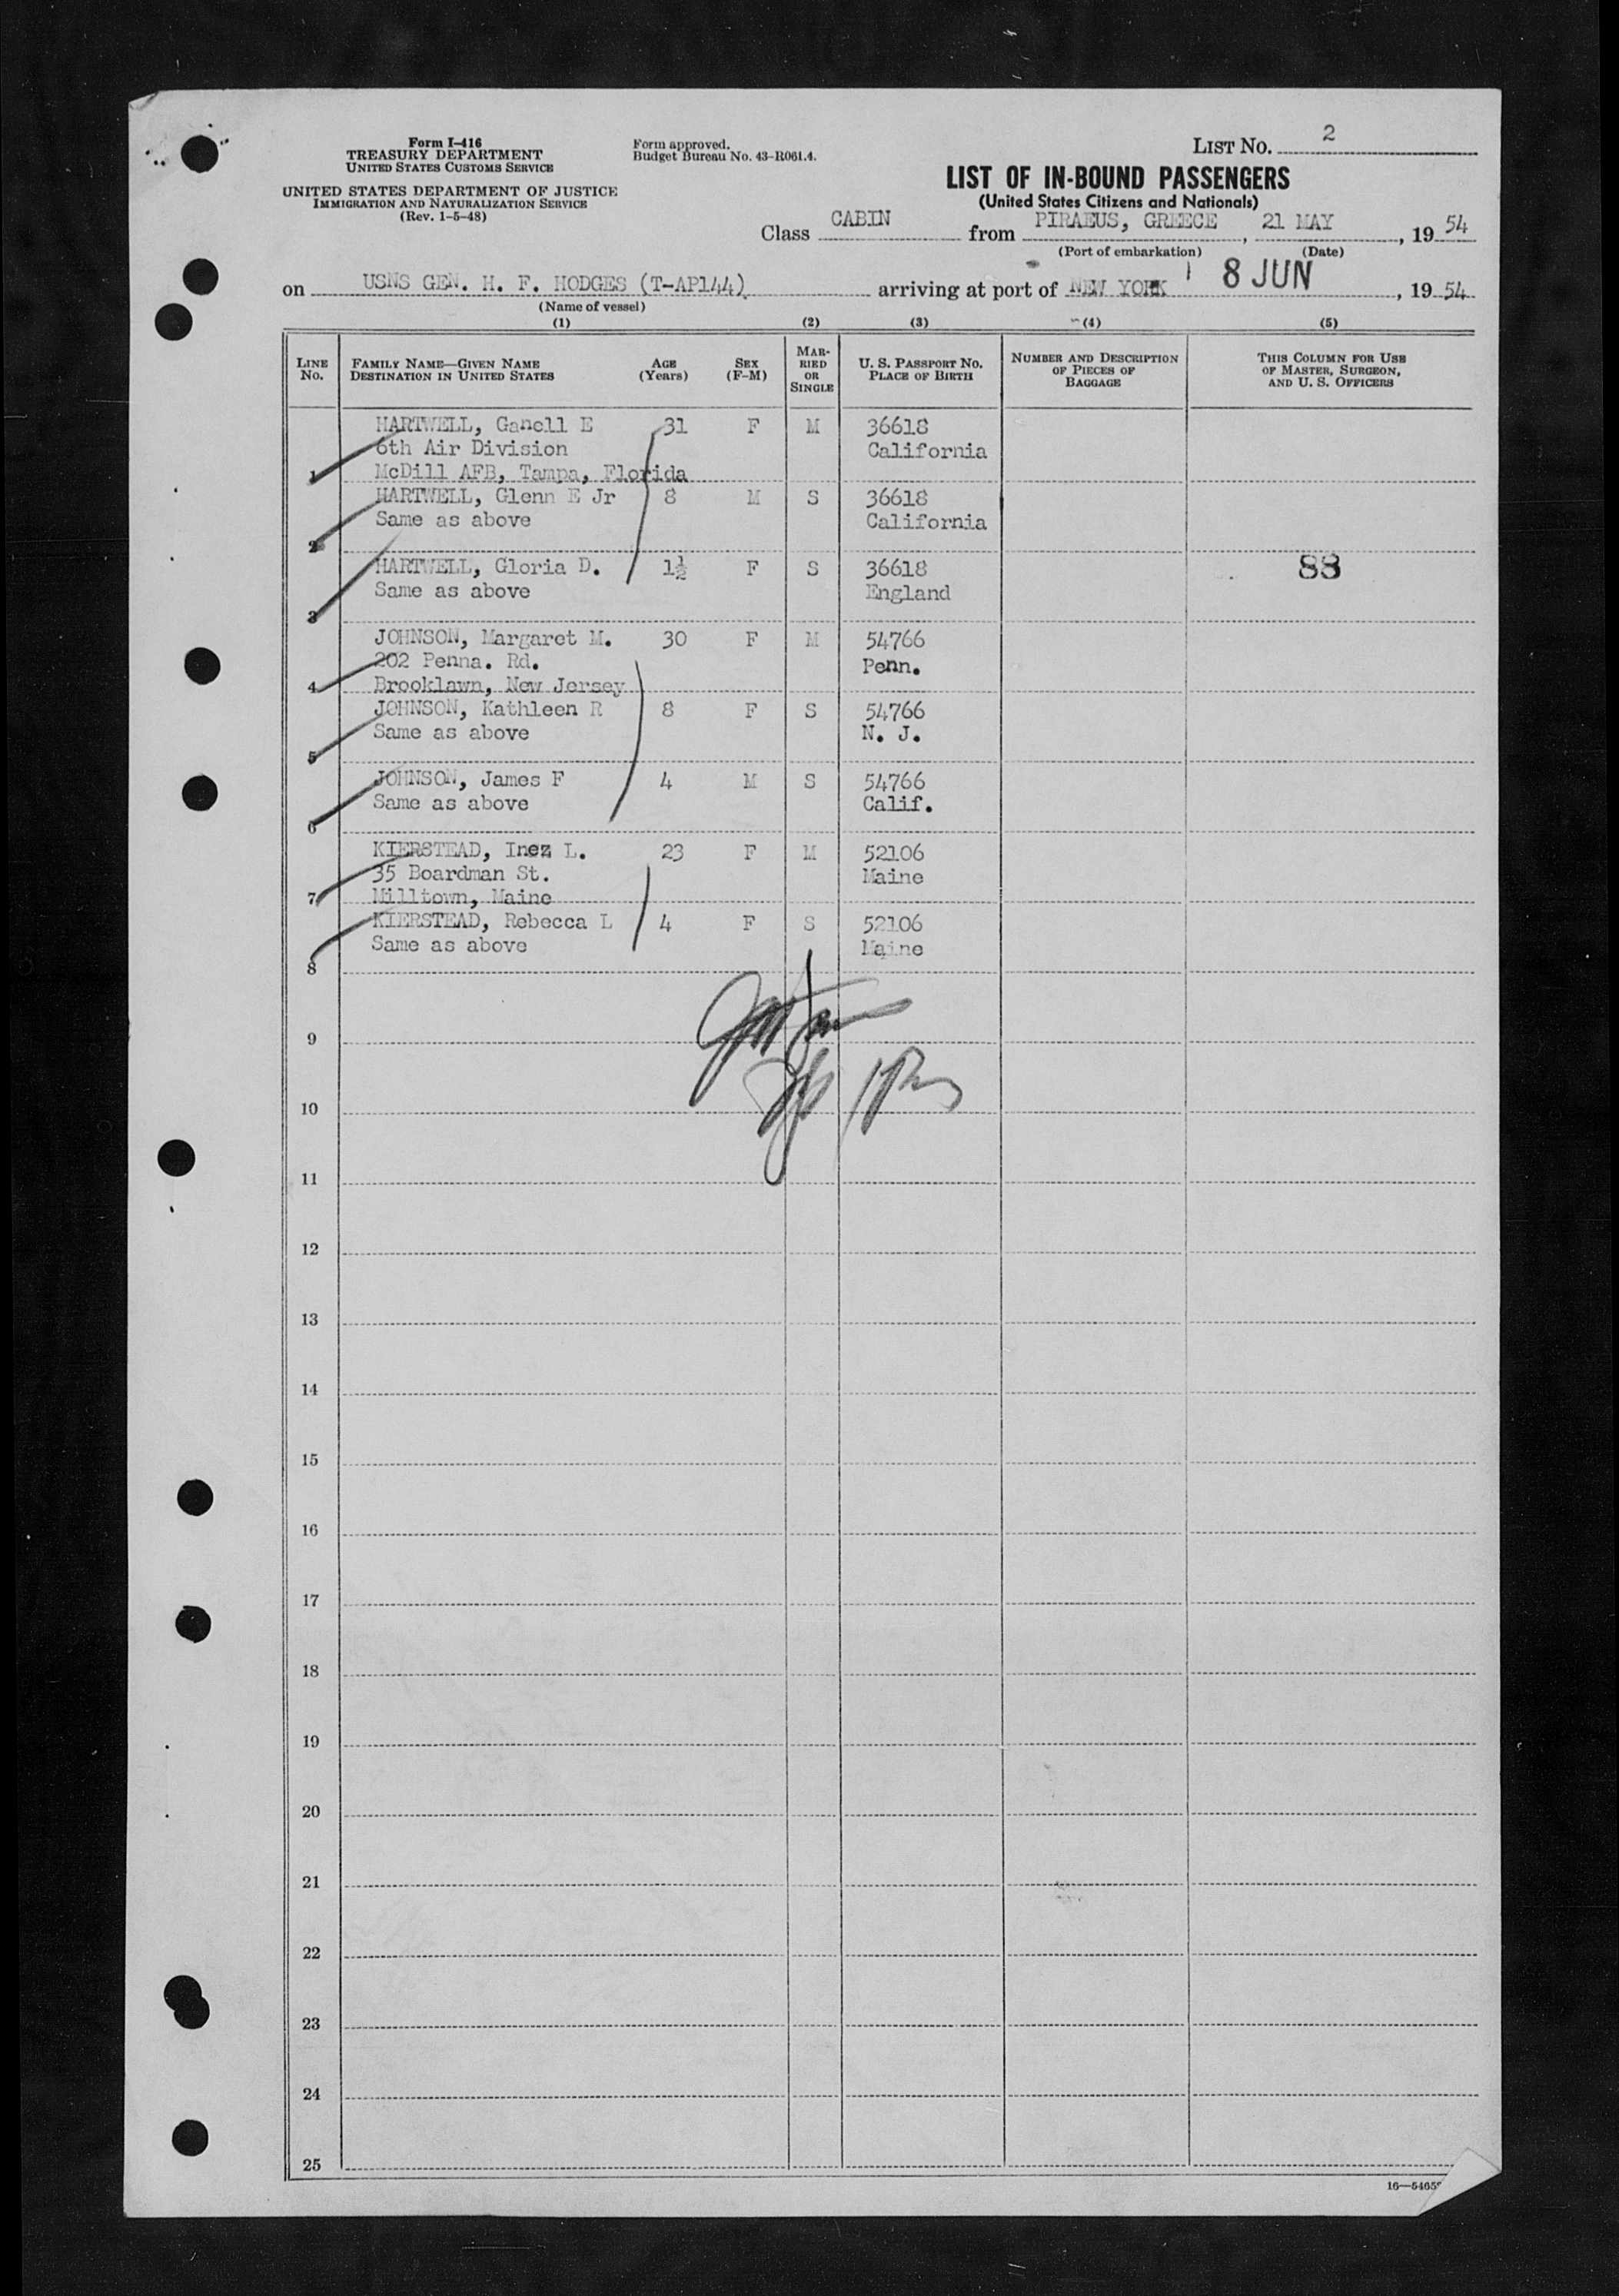 Form I-416
TREASURY DEPARTMENT
UNITED STATES CUSTOMS SERVICE
UNITED STATES DEPARTMENT OF JUSTICE
IMMIGRATION AND NATURALIZATION SERVICE
(Rev. 1-5-48)
Form approved.
Budget Bureau No. 43-R061.4.
LIST No. 2
LIST OF IN-BOUND PASSENGERS
(United States Citizens and Nationals)
Class CABIN from PIRAEUS, GREECE, 21 MAY, 19 54
(Port of embarkation) (Date)
on USNS GEN. H. F. HODGES (T-AP144) arriving at port of NEW YORK 8 JUN, 19 54
(Name of vessel)
(1) (2) (3) (4) (5)
LINE No. FAMILY NAME—GIVEN NAME DESTINATION IN UNITED STATES AGE (Years) SEX (F-M) MARRIED OR SINGLE U. S. PASSPORT No. PLACE OF BIRTH NUMBER AND DESCRIPTION OF PIECES OF BAGGAGE THIS COLUMN FOR USE OF MASTER, SURGEON, AND U. S. OFFICERS
HARTWELL, Ganell E 31 F M 36618
6th Air Division California
1 McDill AFB, Tampa, Florida
HARTWELL, Glenn E Jr 8 M S 36618
Same as above California
2
HARTWELL, Gloria D. 1½ F S 36618 88
Same as above England
3
JOHNSON, Margaret M. 30 F M 54766
202 Penna. Rd. Penn.
4 Brooklawn, New Jersey
JOHNSON, Kathleen R 8 F S 54766
Same as above N. J.
5
JOHNSON, James F 4 M S 54766
Same as above Calif.
6
KIERSTEAD, Inez L. 23 F M 52106
35 Boardman St. Maine
7 Milltown, Maine
KIERSTEAD, Rebecca L 4 F S 52106
Same as above Maine
8
9
10
11
12
13
14
15
16
17
18
19
20
21
22
23
24
25